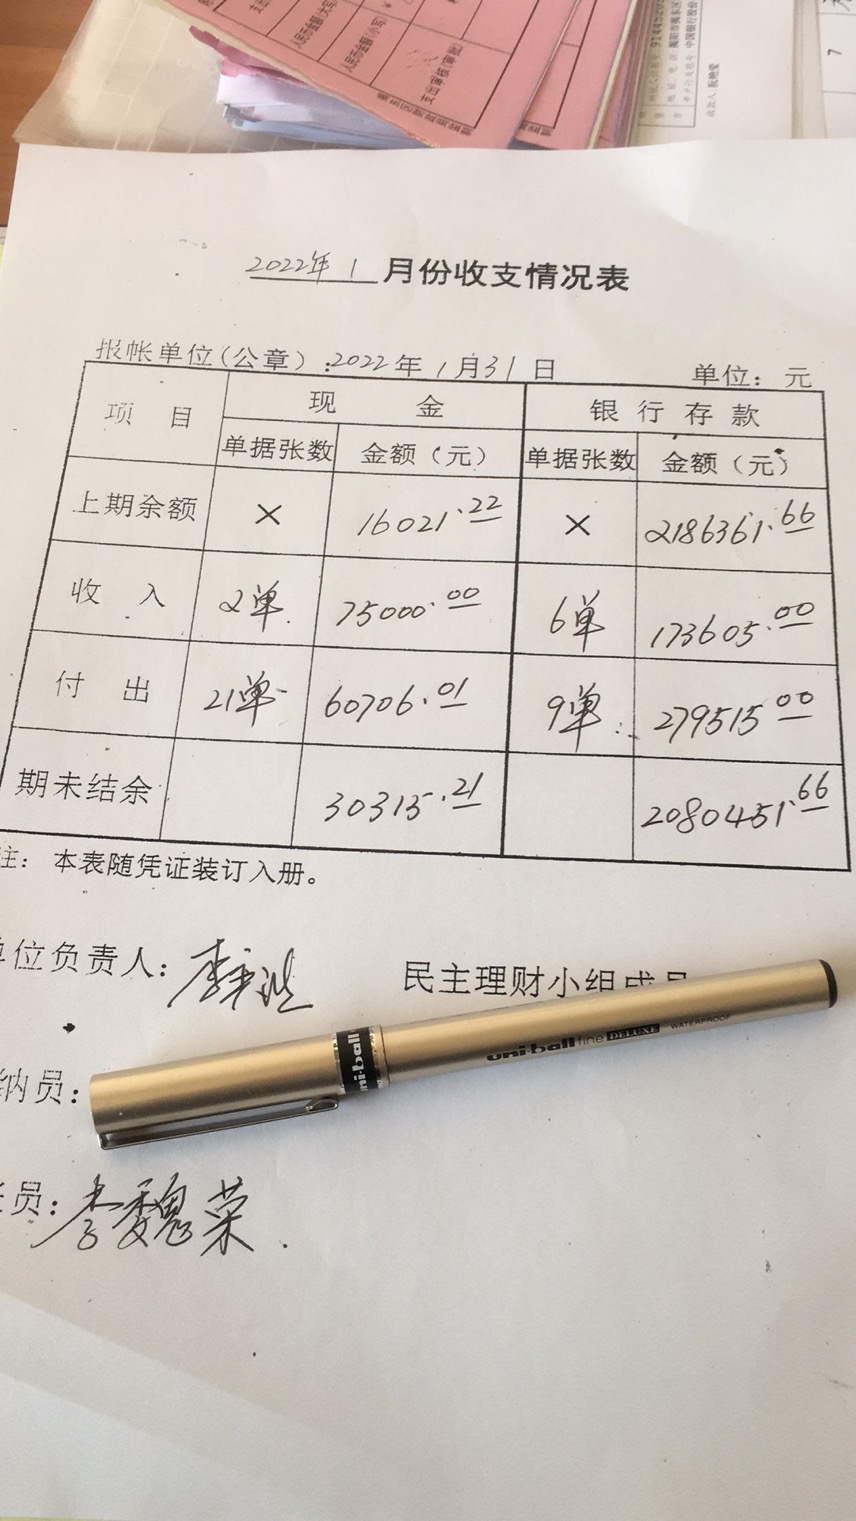 人民币金额(大写)
人民币金额(小写)
支出审核(审批)
7
2022年 1 月份收支情况表
报帐单位(公章):2022年 1月31日 单位:元
项 目 现 金 银行存款
单据张数 金额(元) 单据张数 金额(元)
上期余额 × 16021.22 × 2186361.66
收 入 2单 75000.00 6单 173605.00
付 出 21单 60706.01 9单 279515.00
期未结余 30315.21 2080451.66
注: 本表随凭证装订入册。
单位负责人: 民主理财小组成员
纳员:
uni-ball
uni-ball fine DELUXE WATERPROOF
员: 李魏荣